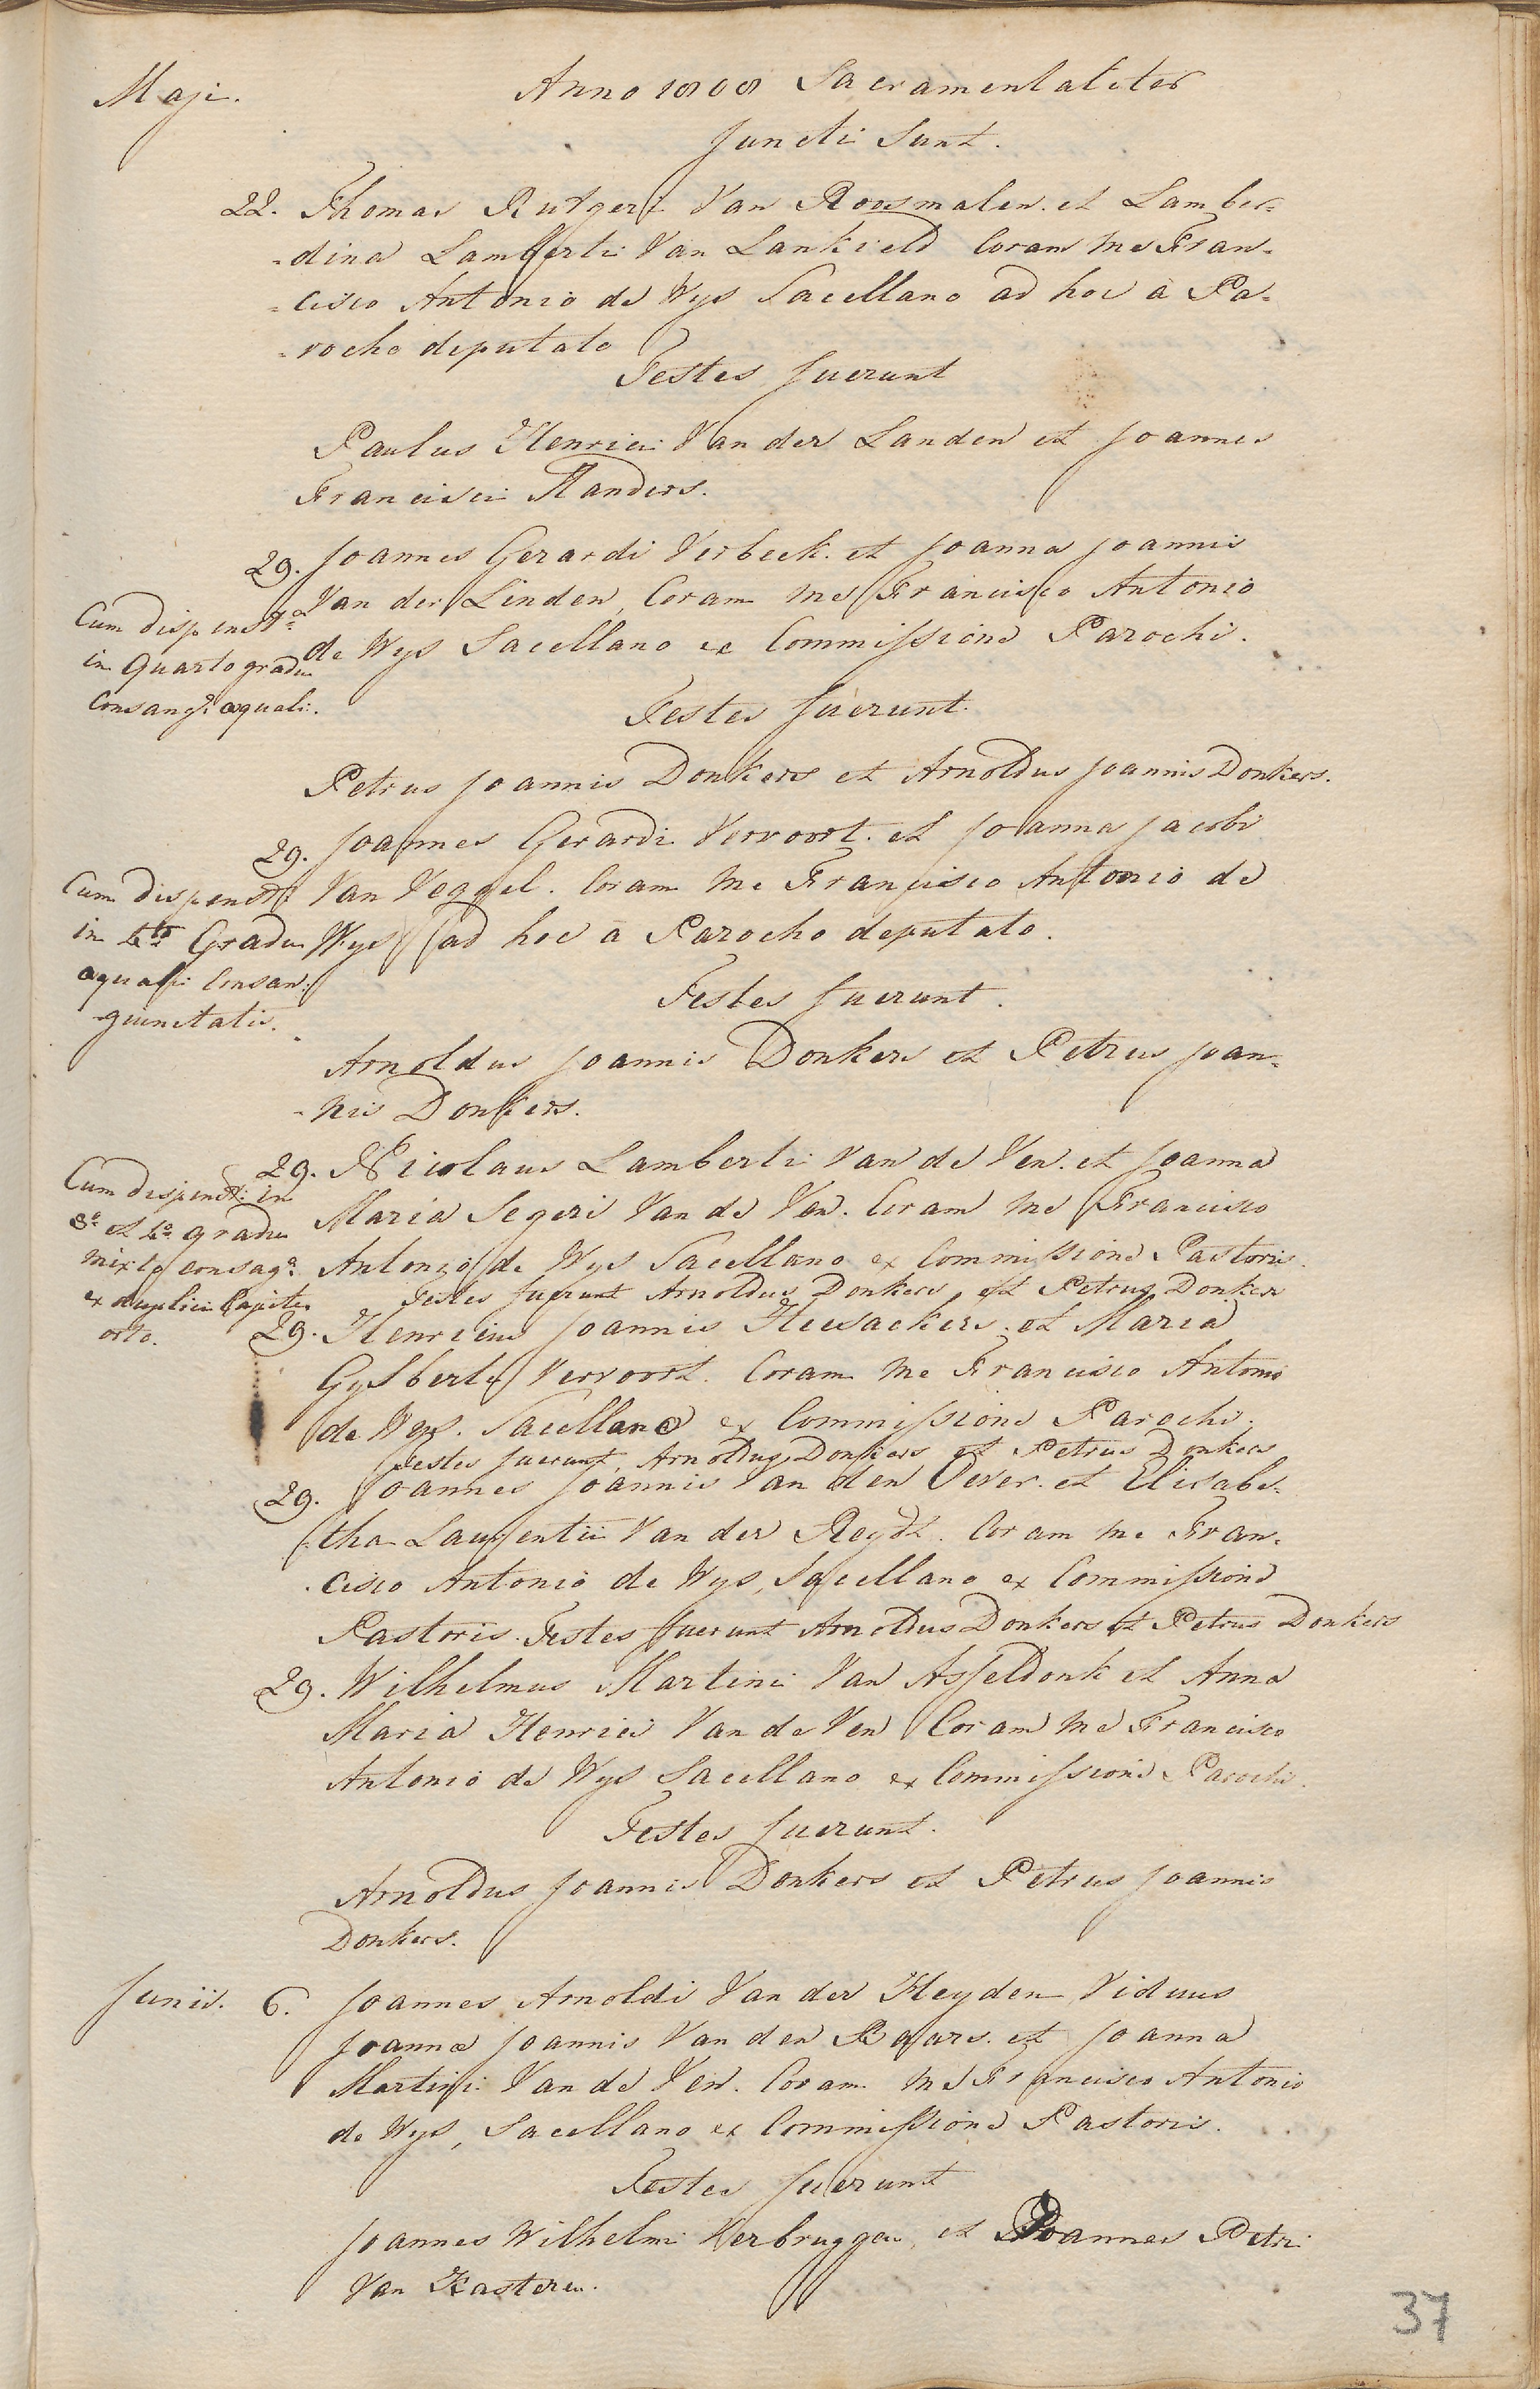 Maji.
Anno 1808 Sacramentaliter
Juncti Sunt.
22. Thomas Rutgeri Van Roosmalen. et Lamber=
=dina Lamberti Van Lankveld Coram me Fran=
=cisco Antonio de Wys Sacellano ad hoc à Pa=
=rocho deputato
Testes fuerunt
Paulus Henrici Van der Landen et Joannes
Francisci Randers.
29. Joannes Gerardi Verbeek. et Joanna Joannis
Van der Linden, Coram me Francisco Antonio
de Wys Sacellano ex Commissione Parochi.
Cum dispenst.e
in Quarto gradu
Consang: aquali.
Testes fuerunt.
Petrus Joannis Donkers et Arnoldus Joannis Donkers.
29. Joannes Gerardi Vervoort. et Joanna Jacobi
Van Veggel. Coram me Francisco Antonio de
Wys ad hoc à Parocho deputato.
Cum dispenst:
in 4to Gradu
aquali Consan:
guinitatis.
Testes fuerunt.
Arnoldus Joannis Donkers et Petrus Joan=
=nis Donkers.
29. Nicolaus Lamberti Van de Ven. et Joanna
Maria Segeri Van de Ven. Coram me Francisco
Antonio de Wys Sacellano ex Commissione Pastoris.
Testes fuerunt Arnoldus Donkers et Petrus Donkers
Cum dispenst: in
3o et 4o gradu
mixto consag.
ex duplici Capite
orto.
29. Henricus Joannis Heesackers. et Maria
Gysberti Vervoort. Coram me Francisco Antonio
de Wys. Sacellano ex Commissione Parochi.
Testes fuerunt, Arnoldus Donkers et Petrus Donkers
29. Joannes Joannis Van den Oever. et Elisabe=
tha Laurentii Van der Reydt. Coram me Fran=
cisco Antonio de Wys, Sacellano ex Commissione
Pastoris. Testes fuerunt Arnoldus Donkers et Petrus Donkers
29. Wilhelmus Martini Van Asseldonk et Anna
Maria Henrici Van de Ven Coram me Francisco
Antonio de Wys Sacellano ex Commissione Parochi.
Testes fuerunt.
Arnoldus Joannis Donkers et Petrus Joannis
Donkers.
Junii. 6. Joannes Arnoldi Van der Heyden Viduus
Joannæ Joannis Van den Baars. et Joanna
Martini Van de Ven. Coram me Francisco Antonio
de Wys, Sacellano ex Commissione Pastoris.
Testes fuerunt
Joannes Wilhelmi Verbruggen, et Joannes Petri
Van Kasteren.
37